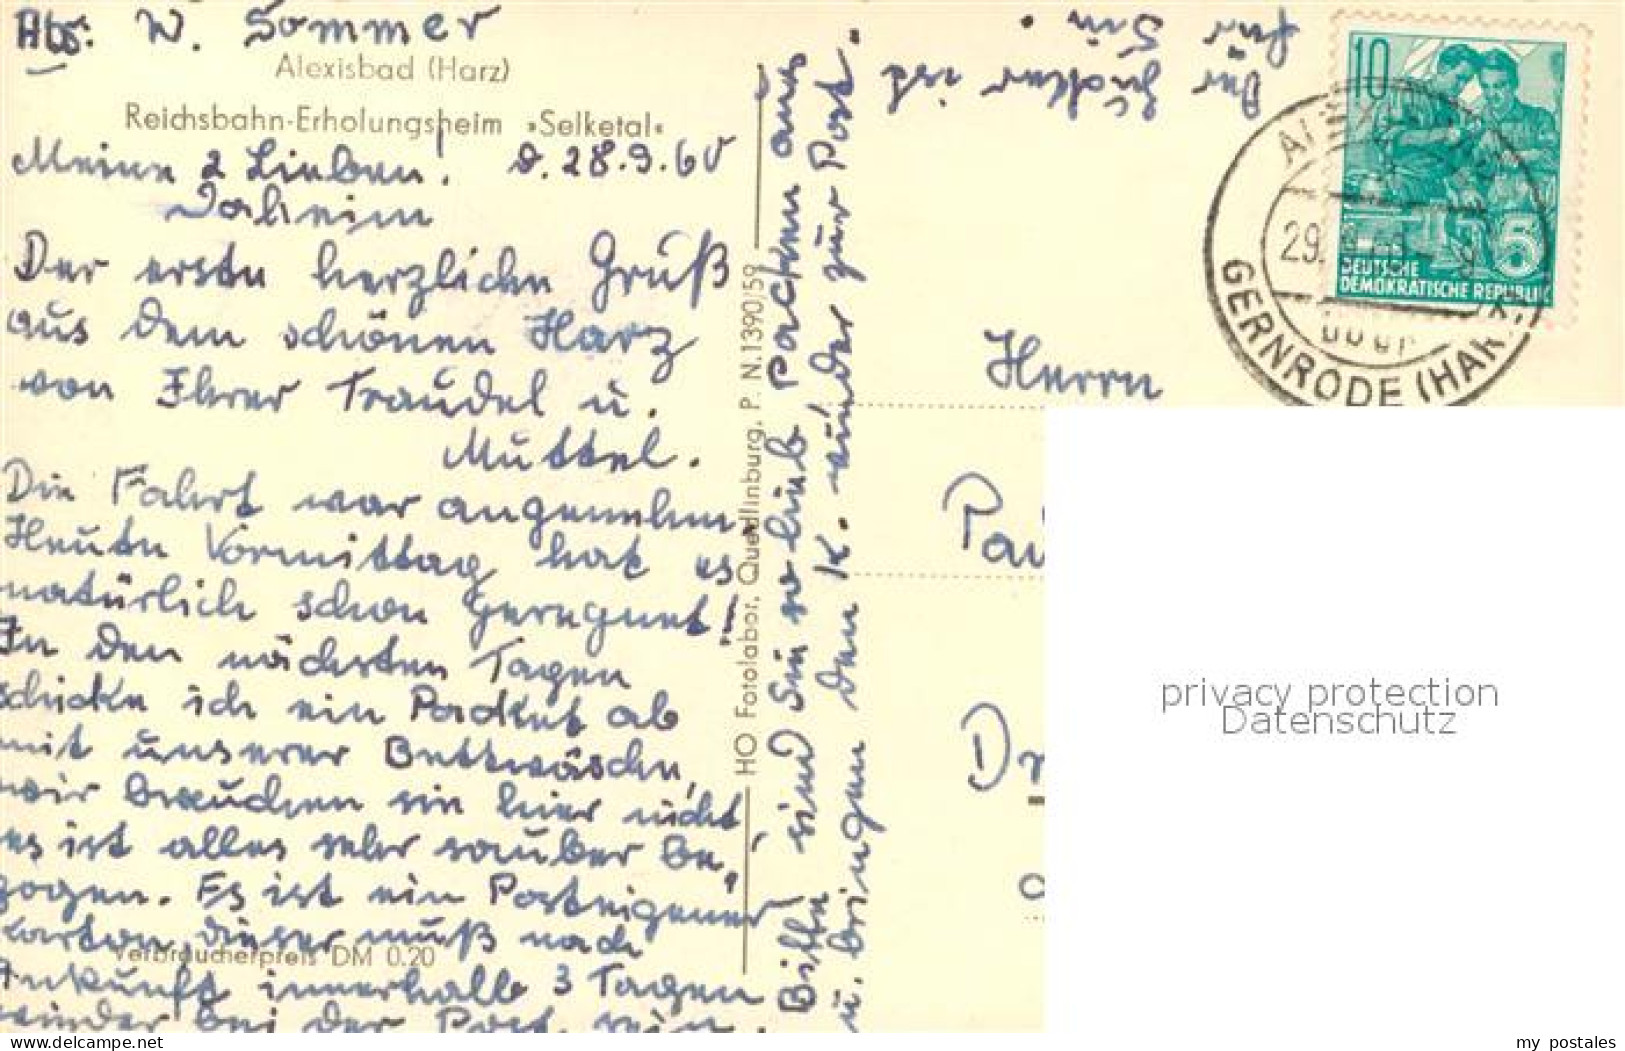 Abs: W. Sommer
Alexisbad (Harz)
Reichsbahn-Erholungsheim »Selketal«
Meine 2 Lieben! d. 28.9.60
Daheim
Der erste herzliche Gruß
aus dem schönen Harz
von Ihrer Traudel u.
Muttel.
Die Fahrt war angenehm.
Heute Vormittag hat es
natürlich schon geregnet!
In den nächsten Tagen
schicke ich ein Packet ab
mit unserer Bettwäsche,
wir brauchen sie hier nicht,
es ist alles sehr sauber be-
zogen. Es ist ein Posteigener
Karton, dieser muß nach
Ankunft innerhalb 3 Tagen
wieder bei der Post sein.
Verbraucherpreis DM 0.20
HO Fotolabor, Quedlinburg, P. N. 1390/59
Bitte sind Sie so lieb packen aus
u. bringen den K. wieder zur Post.
Der Zucker ist
für Sie.
10
5
DEUTSCHE
DEMOKRATISCHE REPUBLIK
29.
GERNRODE (HARZ)
Herrn
Pau
Dr
privacy protection
Datenschutz
www.delcampe.net
my_postales